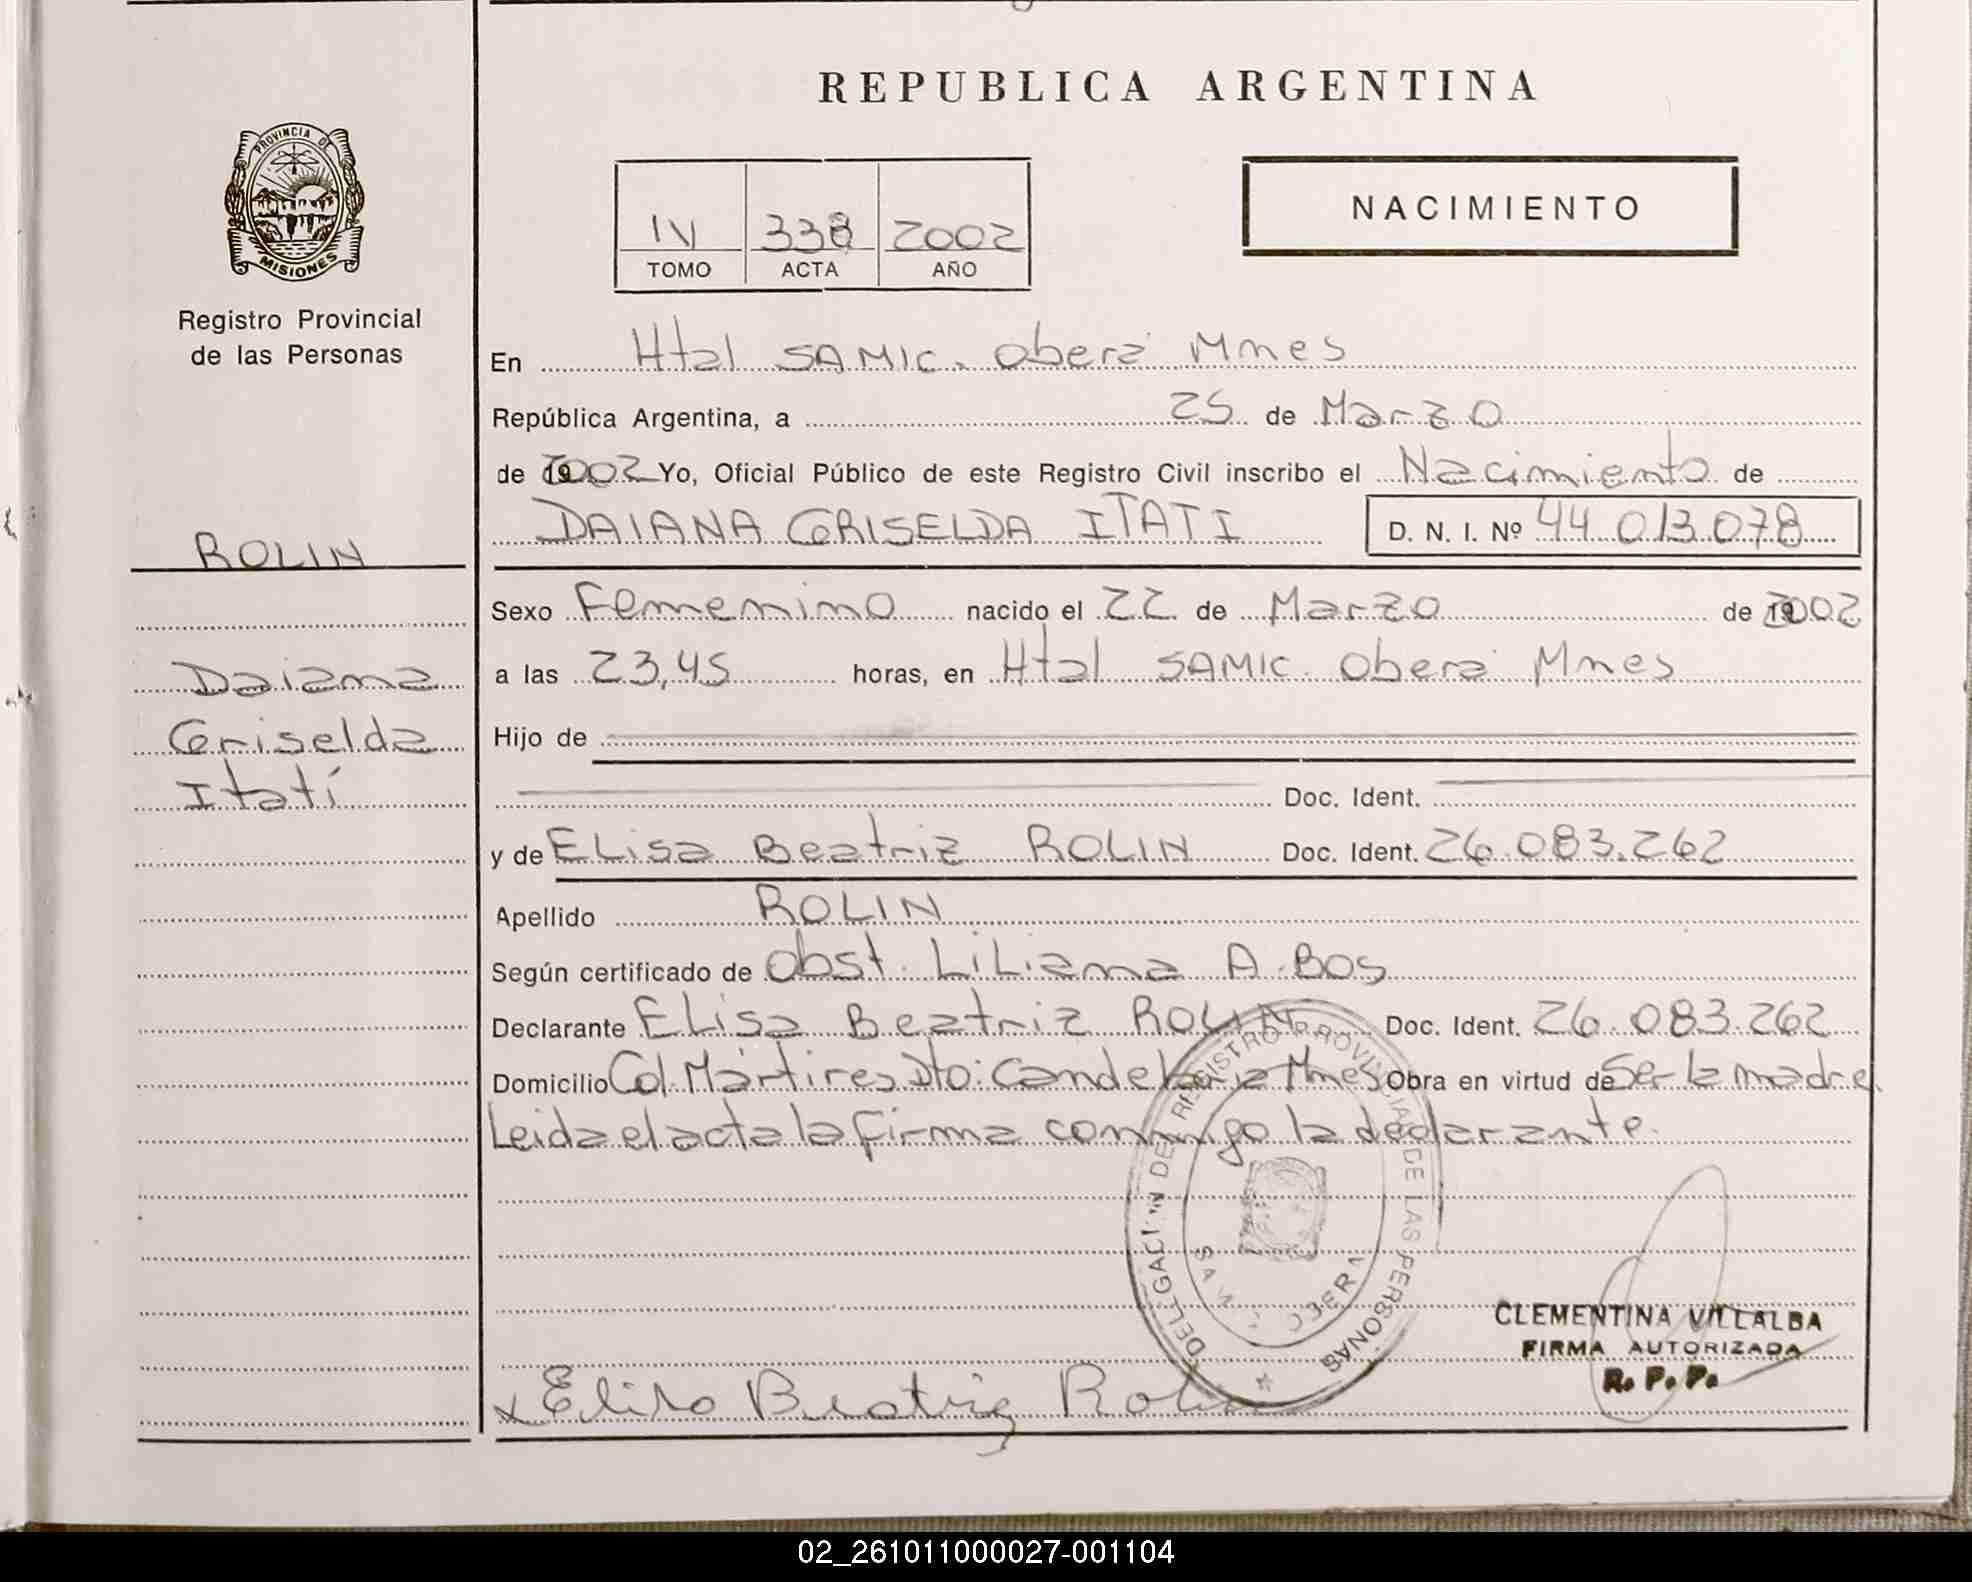 REPUBLICA ARGENTINA
PROVINCIA DE
MISIONES
Registro Provincial
de las Personas
IV 338 2002
TOMO ACTA AÑO
NACIMIENTO
En Htal SAMIC. Oberá Mnes
República Argentina, a 25 de Marzo
de 2002 Yo, Oficial Público de este Registro Civil inscribo el Nacimiento de
DAIANA GRISELDA ITATI D. N. I. Nº 44.013.078
ROLIN
Daiana
Griselda
Itatí
Sexo Femenino nacido el 22 de Marzo de 2002
a las 23,45 horas, en Htal SAMIC. Oberá Mnes
Hijo de
Doc. Ident.
y de Elisa Beatriz ROLIN Doc. Ident. 26.083.262
Apellido ROLIN
Según certificado de Obst. Liliana A. Bos
Declarante Elisa Beatriz ROLIN Doc. Ident. 26.083.262
Domicilio Col. Mártires Dto: Candelaria Mnes Obra en virtud de Ser la madre.
Leida el acta la firma conmigo la declarante.
REGISTRO PROVINCIAL DE LAS PERSONAS
CLEMENTINA VILLALBA
FIRMA AUTORIZADA
R. P. P.
x Elisa Beatriz Rolin
02_261011000027-001104